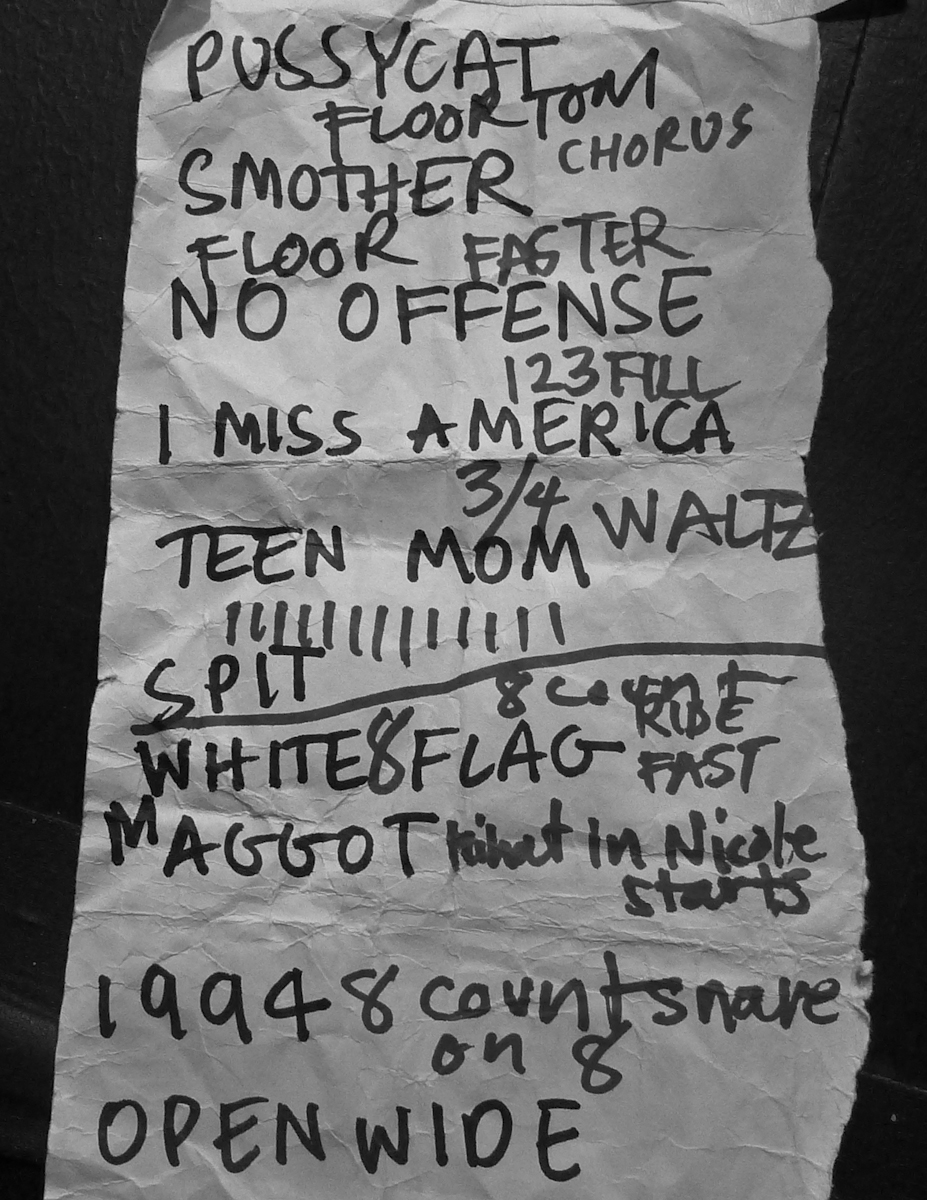 PUSSYCAT
FLOOR TOM
CHORUS
SMOTHER
FLOOR FASTER
NO OFFENSE
123 FILL
I MISS AMERICA
3/4 WALTZ
TEEN MOM
SPIT
8 count
RIDE
WHITE 8 FLAG
FAST
MAGGOT in Nicole
starts
1994 8 count snare
on 8
OPEN WIDE